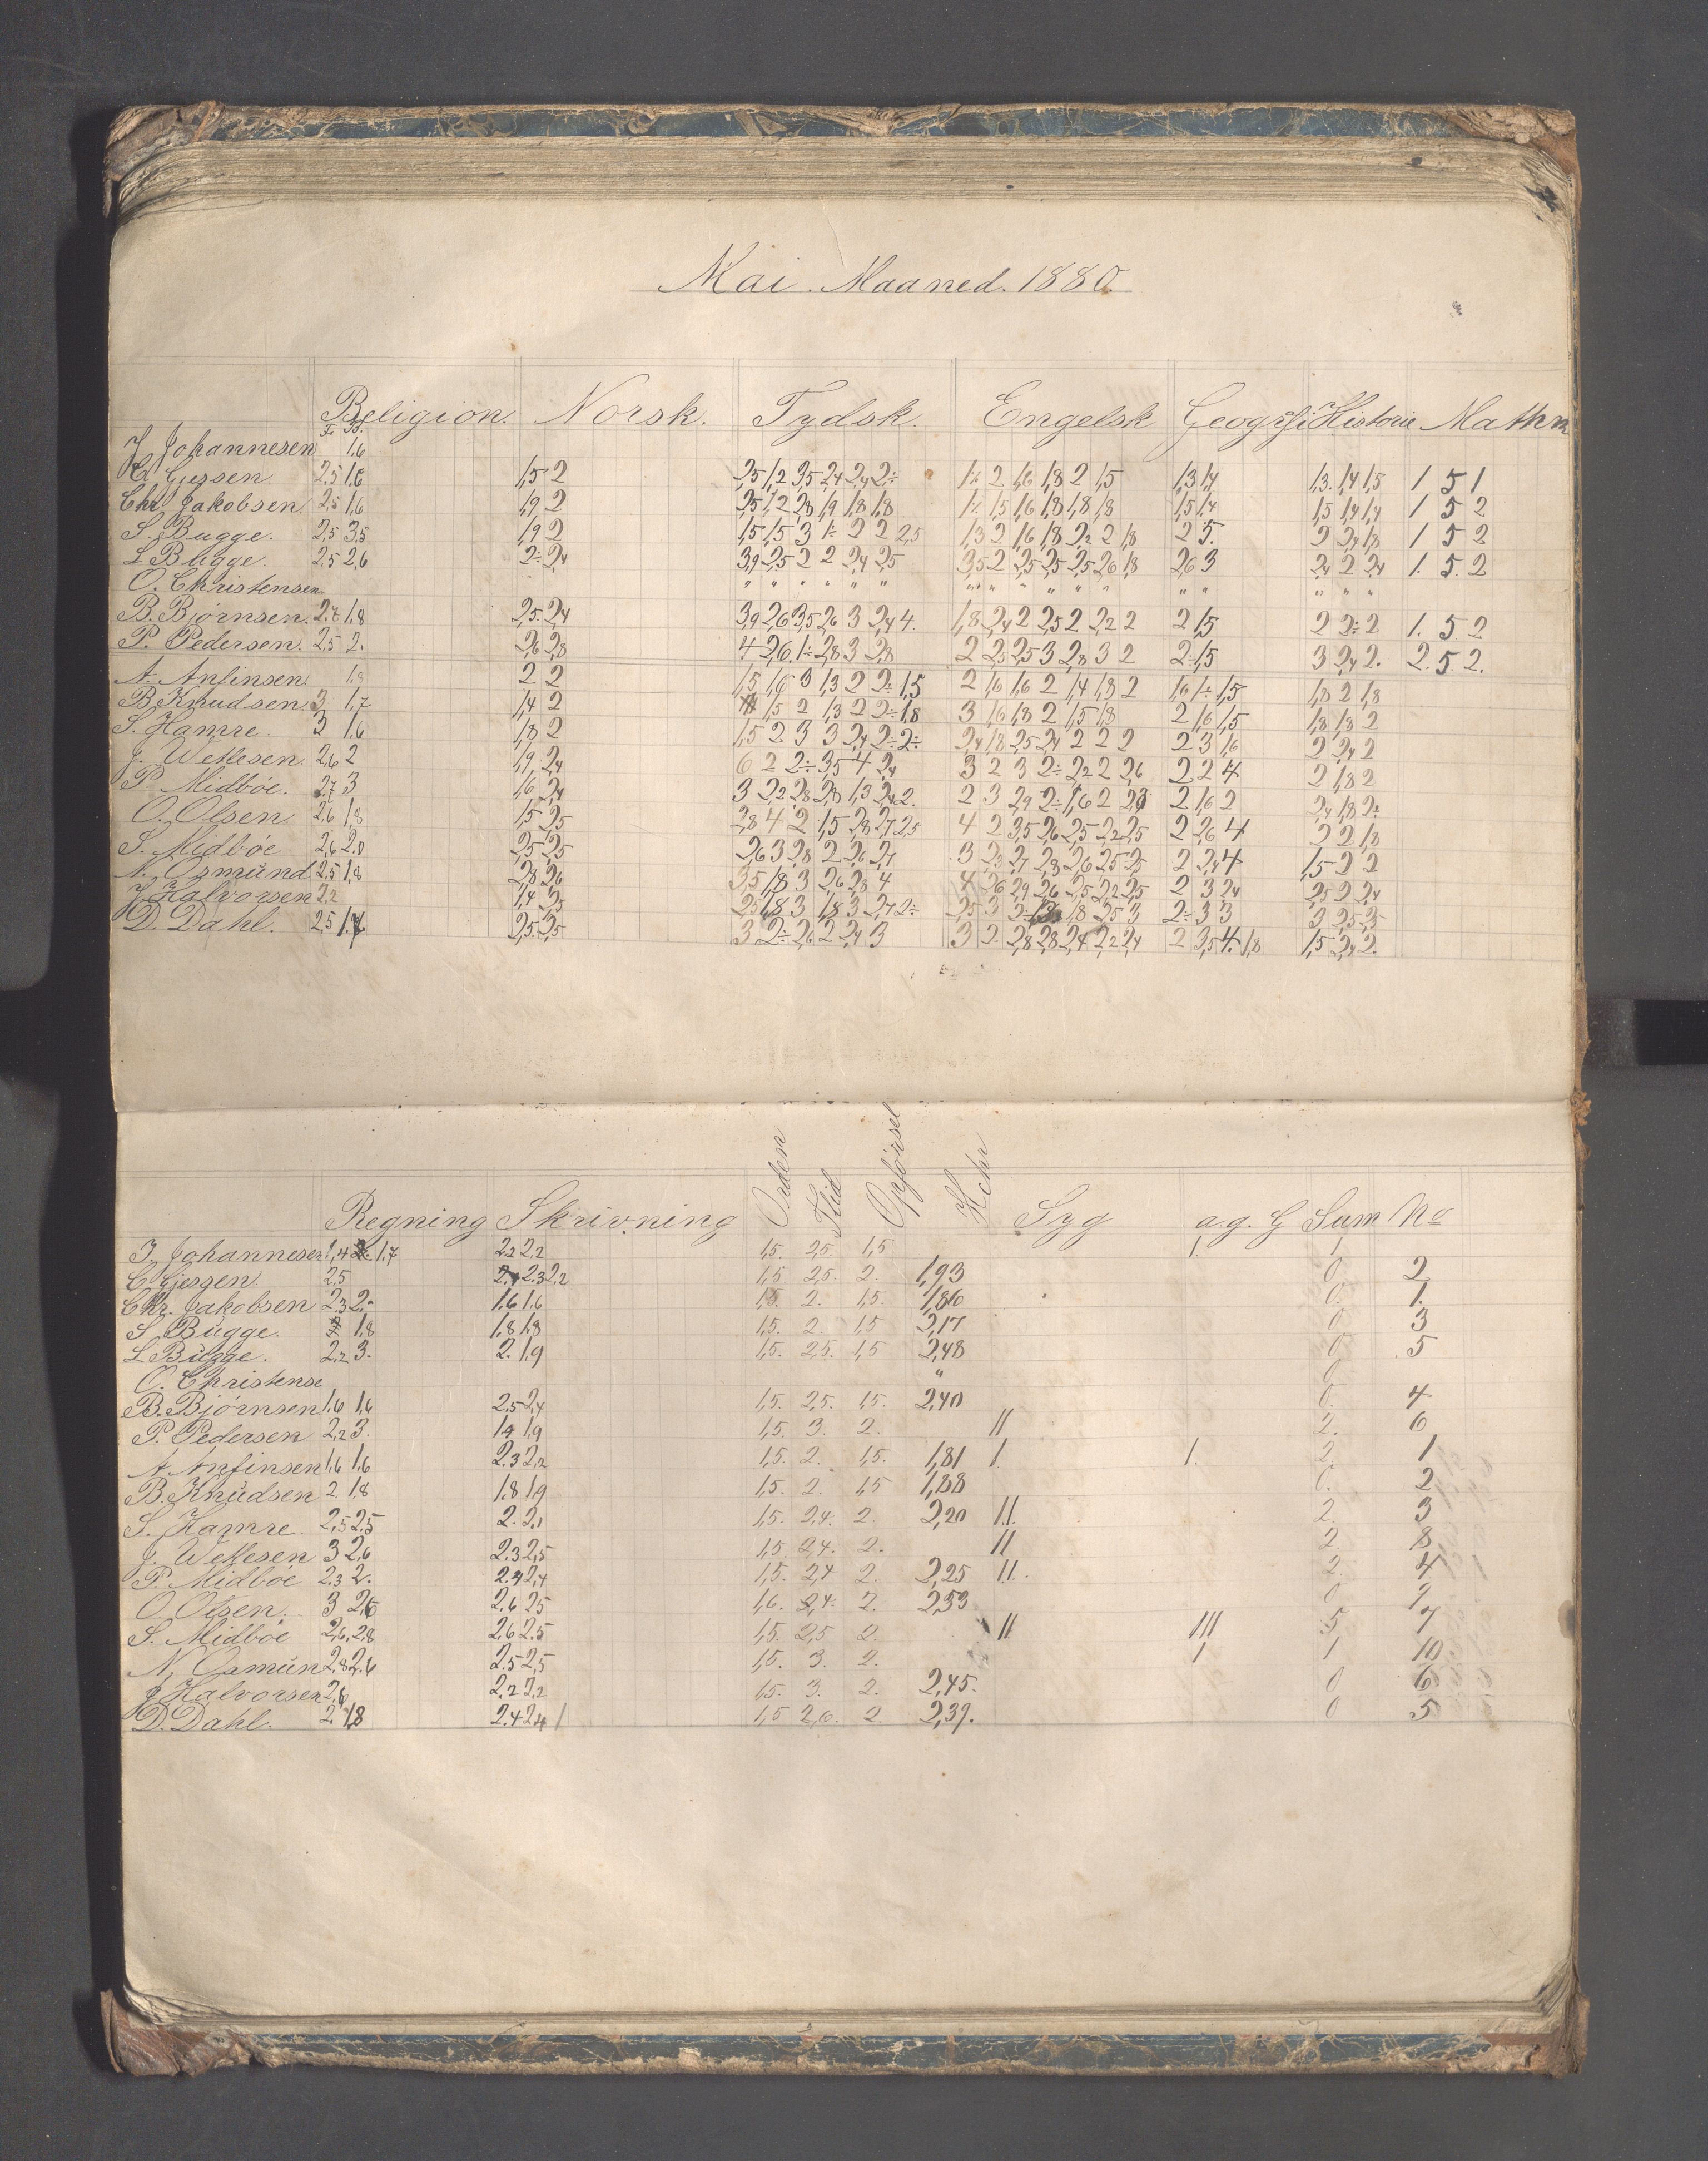 Mai Maaned. 1880.
Religion. Norsk. Tydsk. Engelsk Geografi Historie Mathm
F. B.
J Johannesen 1,6
C. Gjessen 2,5 1,6 1,5 2 2,5 1,2 3,5 2,4 2,4 2÷ 1,6 2 1,6 1,8 2 1,5 1,3 1,4 1,3. 1,4 1,5 1 5 1
Chr. Jakobsen 2,5 1,6 1,9 2 2,5 1,2 2,8 1,9 1,8 1,8 1÷ 1,5 1,6 1,8 1,8 1,8 1,5 1,4 1,5 1,4 1,4 1 5 2
S. Bugge. 2,5 3,5 1,9 2 1,5 1,5 3 1÷ 2 2 2,5 1,3 2 1,6 1,8 2,2 2 1,8 2 5. 2 2,4 1,8 1 5 2
L Bugge. 2,5 2,6 2÷ 2,4 3,9 2,5 2 2 2,4 2,5 3,5 2 2,5 2,5 2,5 2,6 1,8 2,6 3 2,4 2 2,4 1. 5. 2
O. Christensen " " " " " " " " " " " " " " " " " "
B. Bjørnsen. 2,7 1,8 2,5. 2,4 3,9 2,6 3,5 2,6 3 2,4 4. 1,8 2,4 2 2,5 2 2,2 2 2 1,5 2 2÷ 2 1. 5. 2
P. Pedersen. 2,5 2. 2,6 2,8 4 2,6. 1÷ 2,8 3 2,8 2 2,5 2,5 3 2,8 3 2 2÷ 1,5 3 2,4 2. 2. 5. 2.
A. Anfinsen 1,8 2 2 1,5 1,6 3 1,3 2 2÷ 1,5 2 1,6 1,6 2 1,4 1,8 2 1,6 1÷ 1,5 1,8 2 1,8
B Knudsen. 3 1,7 1,4 2 1,5 2 1,3 2 2÷ 1,8 3 1,6 1,8 2 1,5 1,8 2 1,6 1,5 1,8 1,8 2
S. Hamre. 3 1,6 1,8 2 1,5 2 3 3 2,4 2÷ 2÷ 2,4 1,8 2,5 2,4 2 2 2 2 3 1,6 2 2,4 2
J. Wetlesen. 2,6 2 1,9 2,4 6 2 2÷ 3,5 4 2,4 3 2 3 2÷ 2,2 2 2,6 2 2 4 2 1,8 2
P. Midbøe. 2,7 3 1,6 2,4 3 2,2 2,8 2,8 1,3 2,4 2. 2 3 2,9 2÷ 1,6 2 2 1,6 2 2,4 1,8 2÷
O. Olsen. 2,6 1,8 1,5 2,5 3,8 4 2 1,5 2,8 2,7 2,5 4 2 3,5 2,6 2,5 2,2 2,5 2 2,6 4 2 2 1,8
S. Midbøe 2,6 2,0 2,5 2,5 2,6 3 2,8 2 2,6 2,7 3 2,3 2,7 2,8 2,6 2,5 2,5 2 2,4 4 1,5 2 2
N. Osmund 2,5 1,8 2,8 2,6 3,5 1,8 3 2,6 2,8 4 4 2,6 2,9 2,6 2,5 2,2 2,5 2 3 2,4 2,5 2 2,4
J. Halvorsen 2,2 1,4 2,5 2,5 1,8 3 1,8 3 2,7 2÷ 2,5 3 2÷ 1,8 2,5 3 2÷ 3 3 3 2,5 2,5
D. Dahl. 2,5 1,7 2,5. 2,5 3 2÷ 2,6 2 2,4 3 3 2. 2,8 2,8 2,4 2,2 2,4 2 3,5 4. 1,8 1,5 2,4 2.
Regning Skrivning Orden Flid Opførsel Hchr Syg a.g. G Sum No
J. Johannesen 1,4 1,7 2,2 2,2 1,5. 2,5. 1,5 1 1
C. Gjessen. 2,5 2,3 2,2 1,5. 2,5. 2. 1,93 0. 2
Chr. Jakobsen 2,3 2÷ 1,6 1,6 1,5. 2. 1,5. 1,86 0. 1.
S Bugge. 1,8 1,8 1,8 1,5. 2. 1,5 2,17 0 3
L Bugge. 2,2 3. 2. 1,9 1,5. 2,5. 1,5 2,48 0 5
O. Christense " 0
B. Bjørnsen 1,6 1,6 2,5 2,4 1,5. 2,5. 1,5. 2,40 0. 4
P. Pedersen 2,2 3. 1,9 1,9 1,5. 3. 2. II 2. 6
A. Anfinsen 1,6 1,6 2,3 2,2 1,5. 2. 1,5. 1,81 I 1. 2. 1
B. Knudsen 2 1,8 1,8 1,9 1,5. 2. 1,5 1,88 0. 2
S. Hamre 2,5 2,5 2. 2,1 1,5. 2,4. 2. 2,20 II. 2. 3
J. Wetlesen 3 2,6 2,3 2,5 1,5. 2,4. 2. II 2. 8
P. Midbøe 2,3 2. 2,4 1,5. 2,4 2. 2,25 II. 2 4
O. Olsen. 3 2,6 2,6 2,5 1,6. 2,4. 2. 2,53 0 9
S. Midbøe 2,6. 2,8 2,6 2,5 1,5. 2,5 2. II III 5 7
N. Osmun 2,8 2,6 2,5 2,5 1,5. 3. 2. I 1 10
J Halvorsen 2,6 2,2 2,2 1,5. 3. 2. 2,45. 0 6
D. Dahl. 2 1,8 2,4 2,4 1,5 2,6. 2 2,39. 0 5